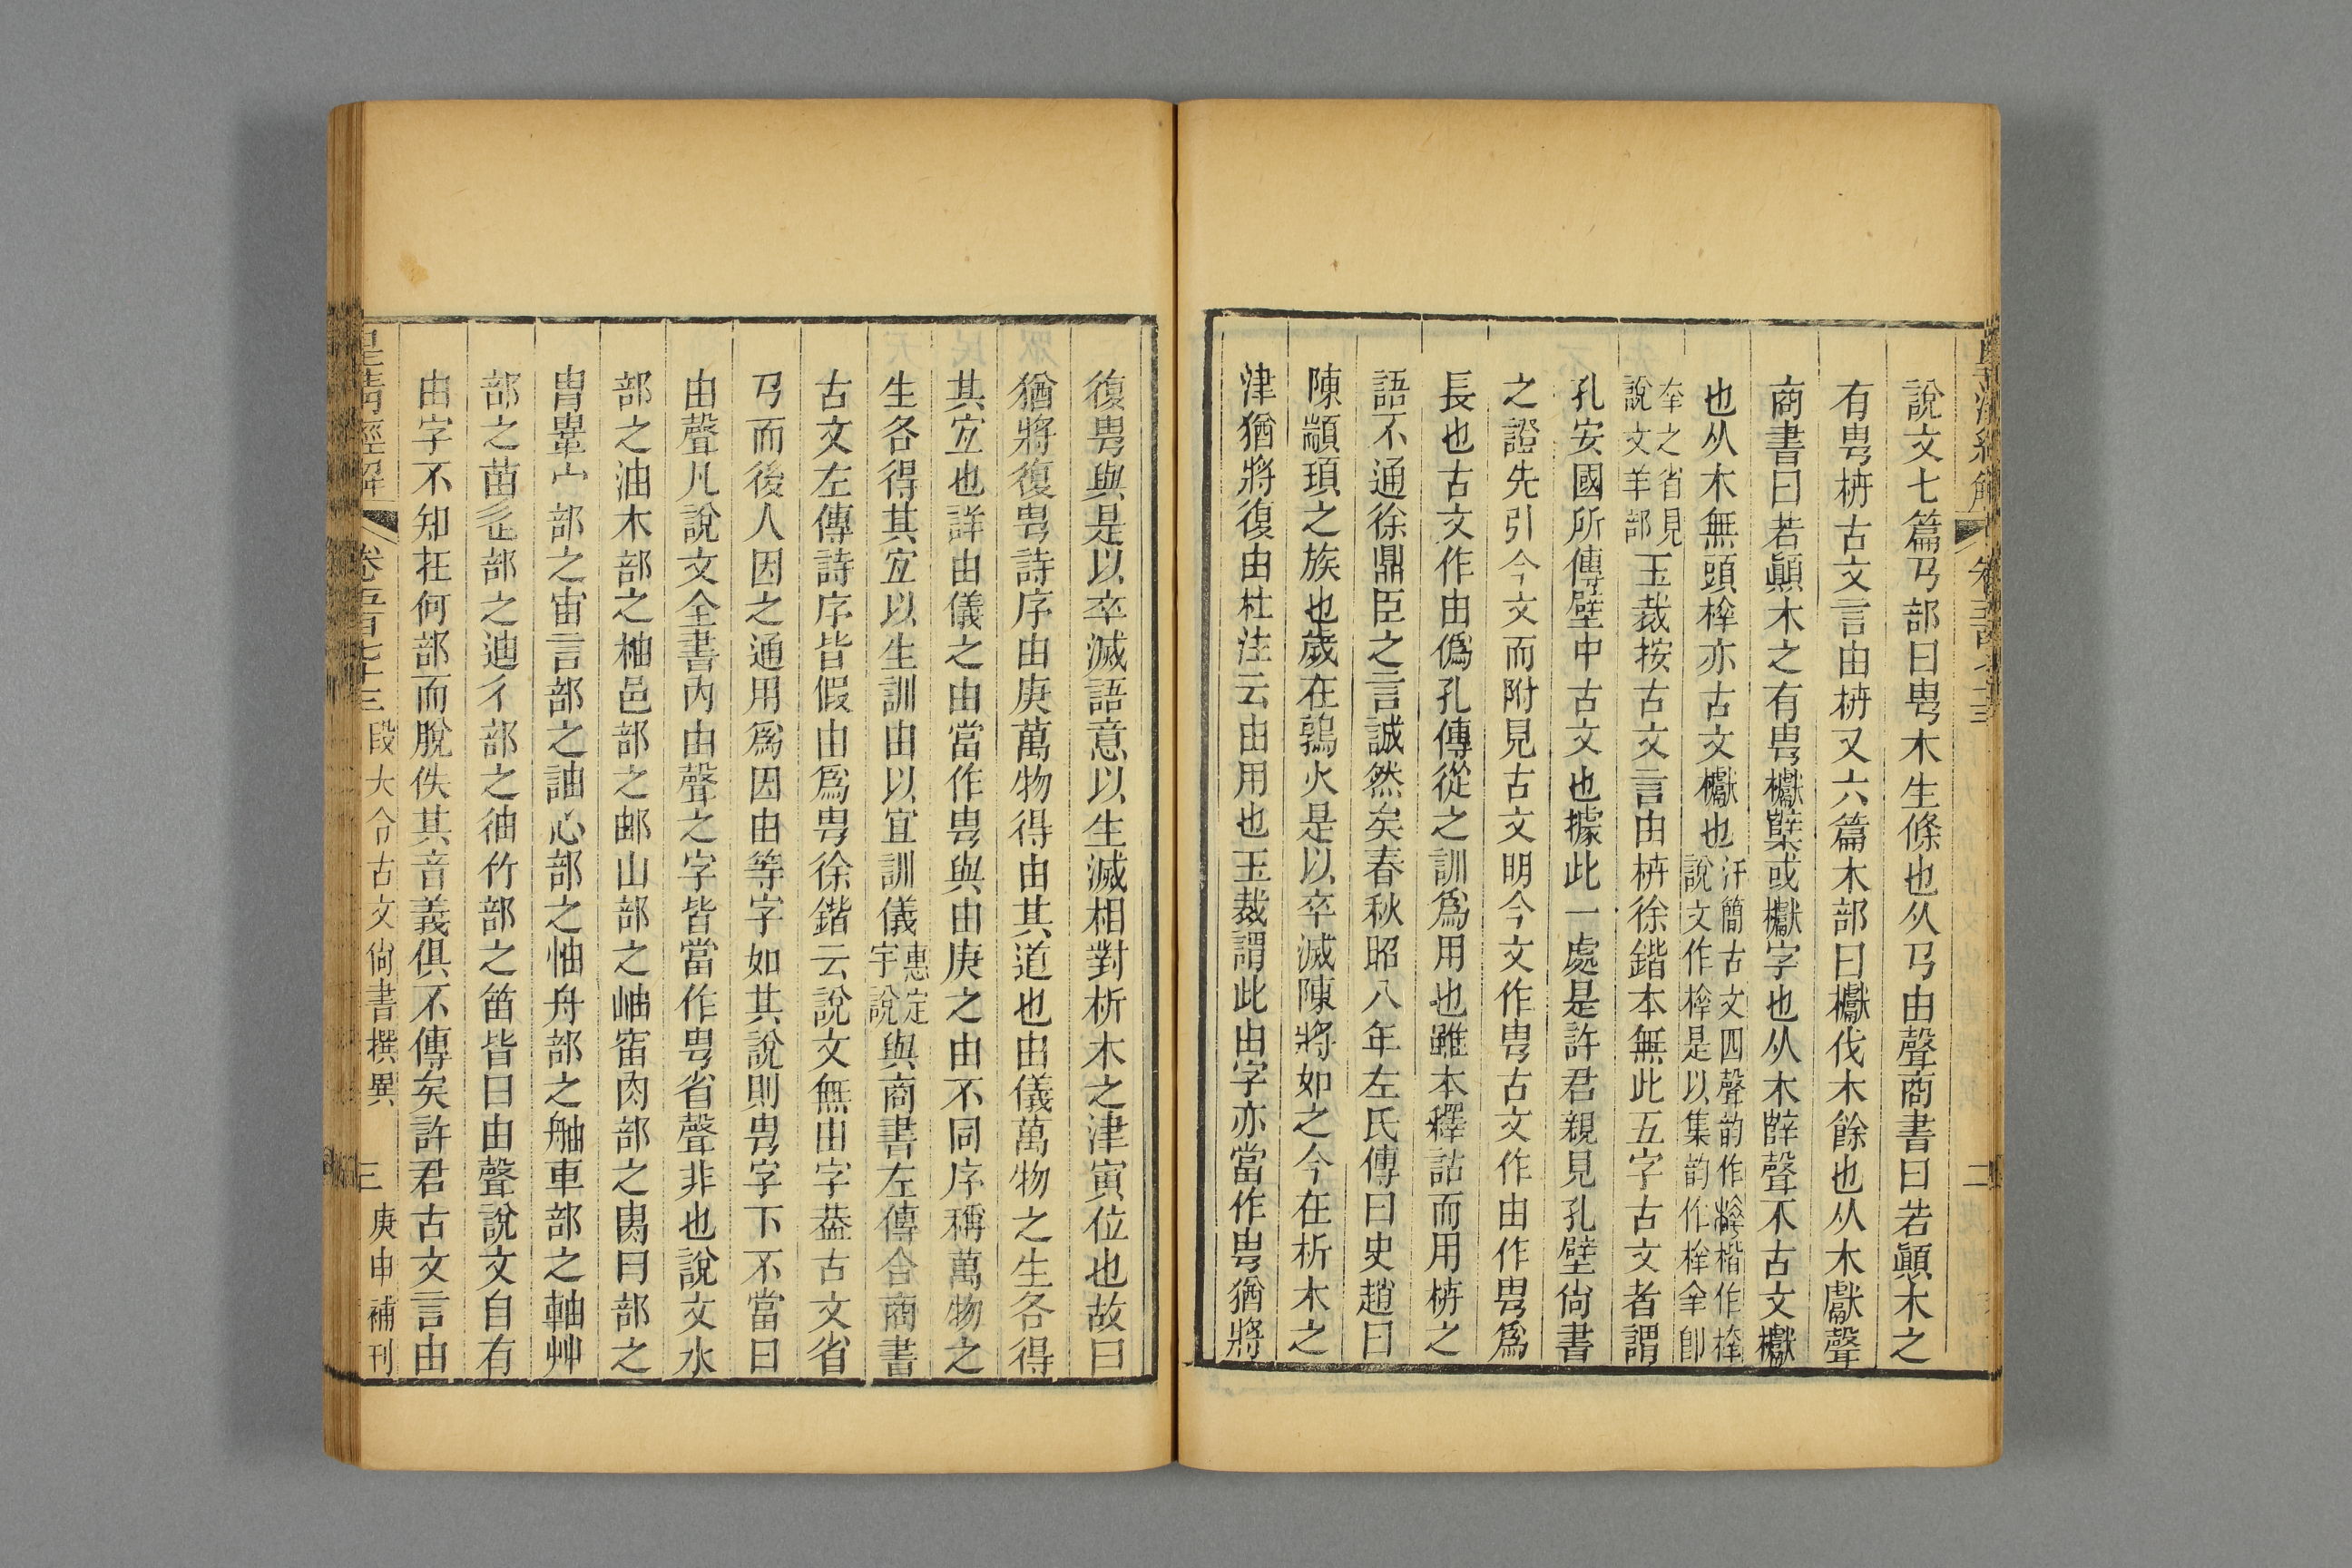 皇清經解 卷五百七十三 二
說文七篇𢎘部曰甹木生條也从𢎘由聲商書曰若顚木之
有甹枿古文言由枿又六篇木部曰櫱伐木餘也从木獻聲
商書曰若顚木之有甹𣡌櫱或𣡌字也从木辥聲不古文𣡌
也从木無頭㮆亦古文𣡌也汗簡古文四聲韵作㮆楷作㮆說文作㮆是以集韵作㮆𢆉卽
㚔之省見說文羊部玉裁按古文言由枿徐鍇本無此五字古文者謂
孔安國所傳壁中古文也據此一處是許君親見孔壁尙書
之證先引今文而附見古文明今文作甹古文作由作甹爲
長也古文作由僞孔傳從之訓爲用也雖本釋詁而用枿之
語不通徐鼎臣之言誠然矣春秋昭八年左氏傳曰史趙曰
陳顓頊之族也歲在鶉火是以卒滅陳將如之今在析木之
津猶將復由杜注云由用也玉裁謂此由字亦當作甹猶將
復甹與是以卒滅語意以生滅相對析木之津寅位也故曰
猶將復甹詩序由庚萬物得由其道也由儀萬物之生各得
其宜也詳由儀之由當作甹與由庚之由不同序稱萬物之
生各得其宜以生訓由以宜訓儀惠定宇說與商書左傳合商書
古文左傳詩序皆假由爲甹徐鍇云說文無由字葢古文省
𢎘而後人因之通用爲因由等字如其說則甹字下不當曰
由聲凡說文全書內由聲之字皆當作甹省聲非也說文水
部之油木部之柚邑部之邮山部之岫宙肉部之胄冃部之
冑𠦒宀部之宙言部之訕心部之怞舟部之舳車部之軸艸
部之苗辵部之迪彳部之䄂竹部之笛皆曰由聲說文自有
由字不知在何部而脫佚其音義俱不傳矣許君古文言由
皇清經解 卷五百七十三 段大令古文尙書撰異 三 庚申補刊